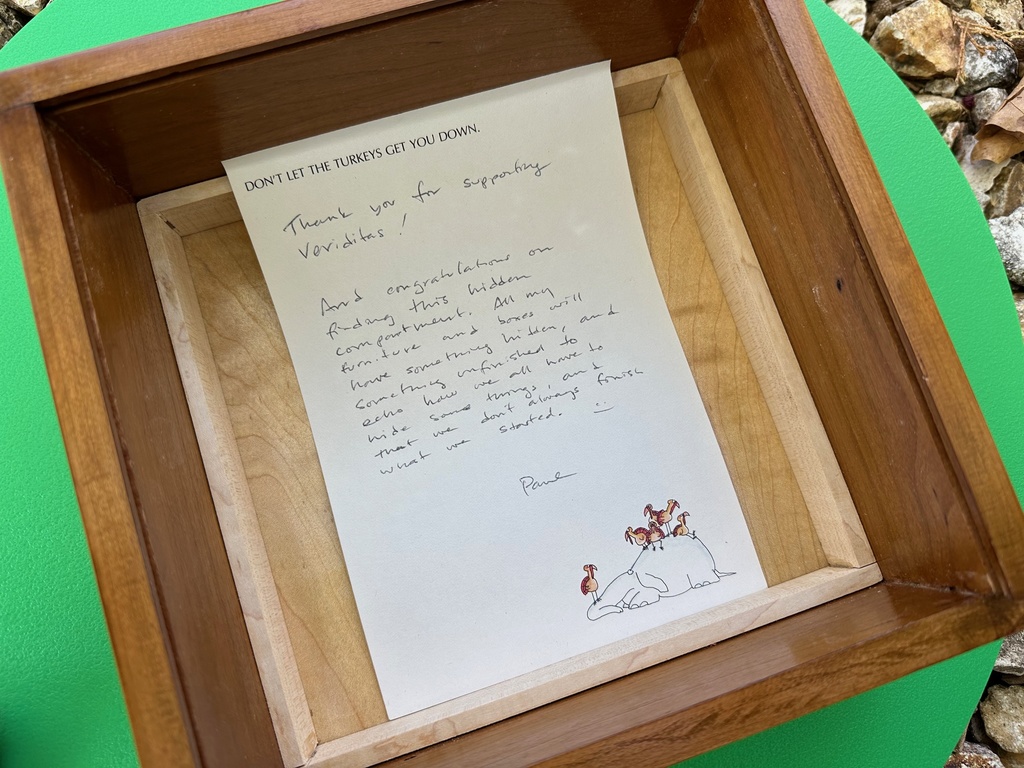 DON'T LET THE TURKEYS GET YOU DOWN.
Thank you for supporting
Veriditas!
And congratulations on
finding this hidden
compartment. All my
furniture and boxes will
have something hidden, and
something unfinished to
echo how we all have to
hide some things, and
that we don't always finish
what we started. :)